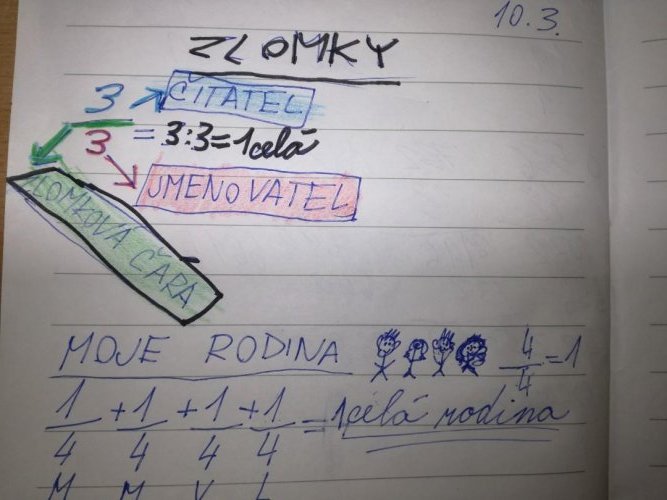 10.3.
ZLOMKY
3 ČITATEL
3 = 3:3=1celá
JMENOVATEL
ZLOMKOVÁ ČÁRA
MOJE RODINA 4/4=1
1/4+1/4+1/4+1/4=1celá rodina
M M V L